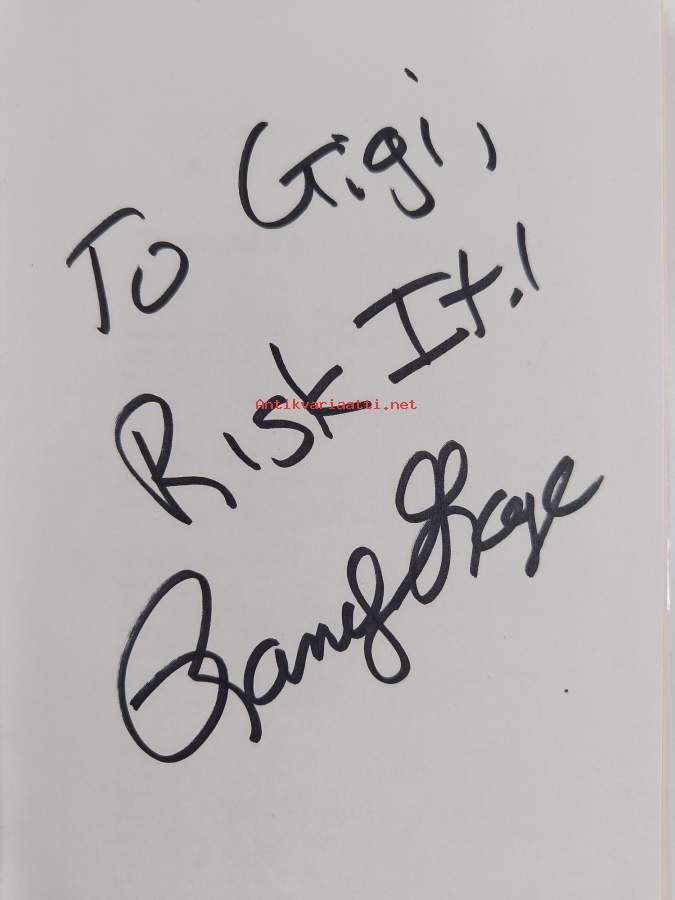 To Gigi,
Risk It!
Antikvariaatti.net
Randy Gage